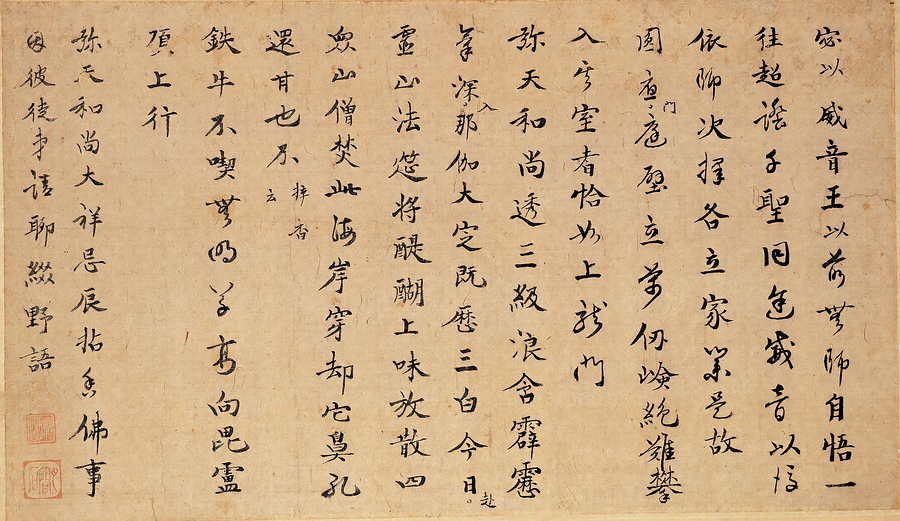 宓以威音王以前無師自悟一
徃超千聖同途威音以後
依師決擇各立家業是故
圓門庭壁立萬仞嶮絕難攀
入其室者恰如上龍門
弥天和尚透三級浪含霹靂
氣深入那伽大定既歷三白今日赴
靈山法筵将醍醐上味放散四
衆山僧焚此海岸穿却它鼻孔
還甘也不 插香云
鉄牛不喫無明草直向毘盧
頂上行
弥天和尚大祥忌辰拈香佛事
因彼徒弟請聊綴野語